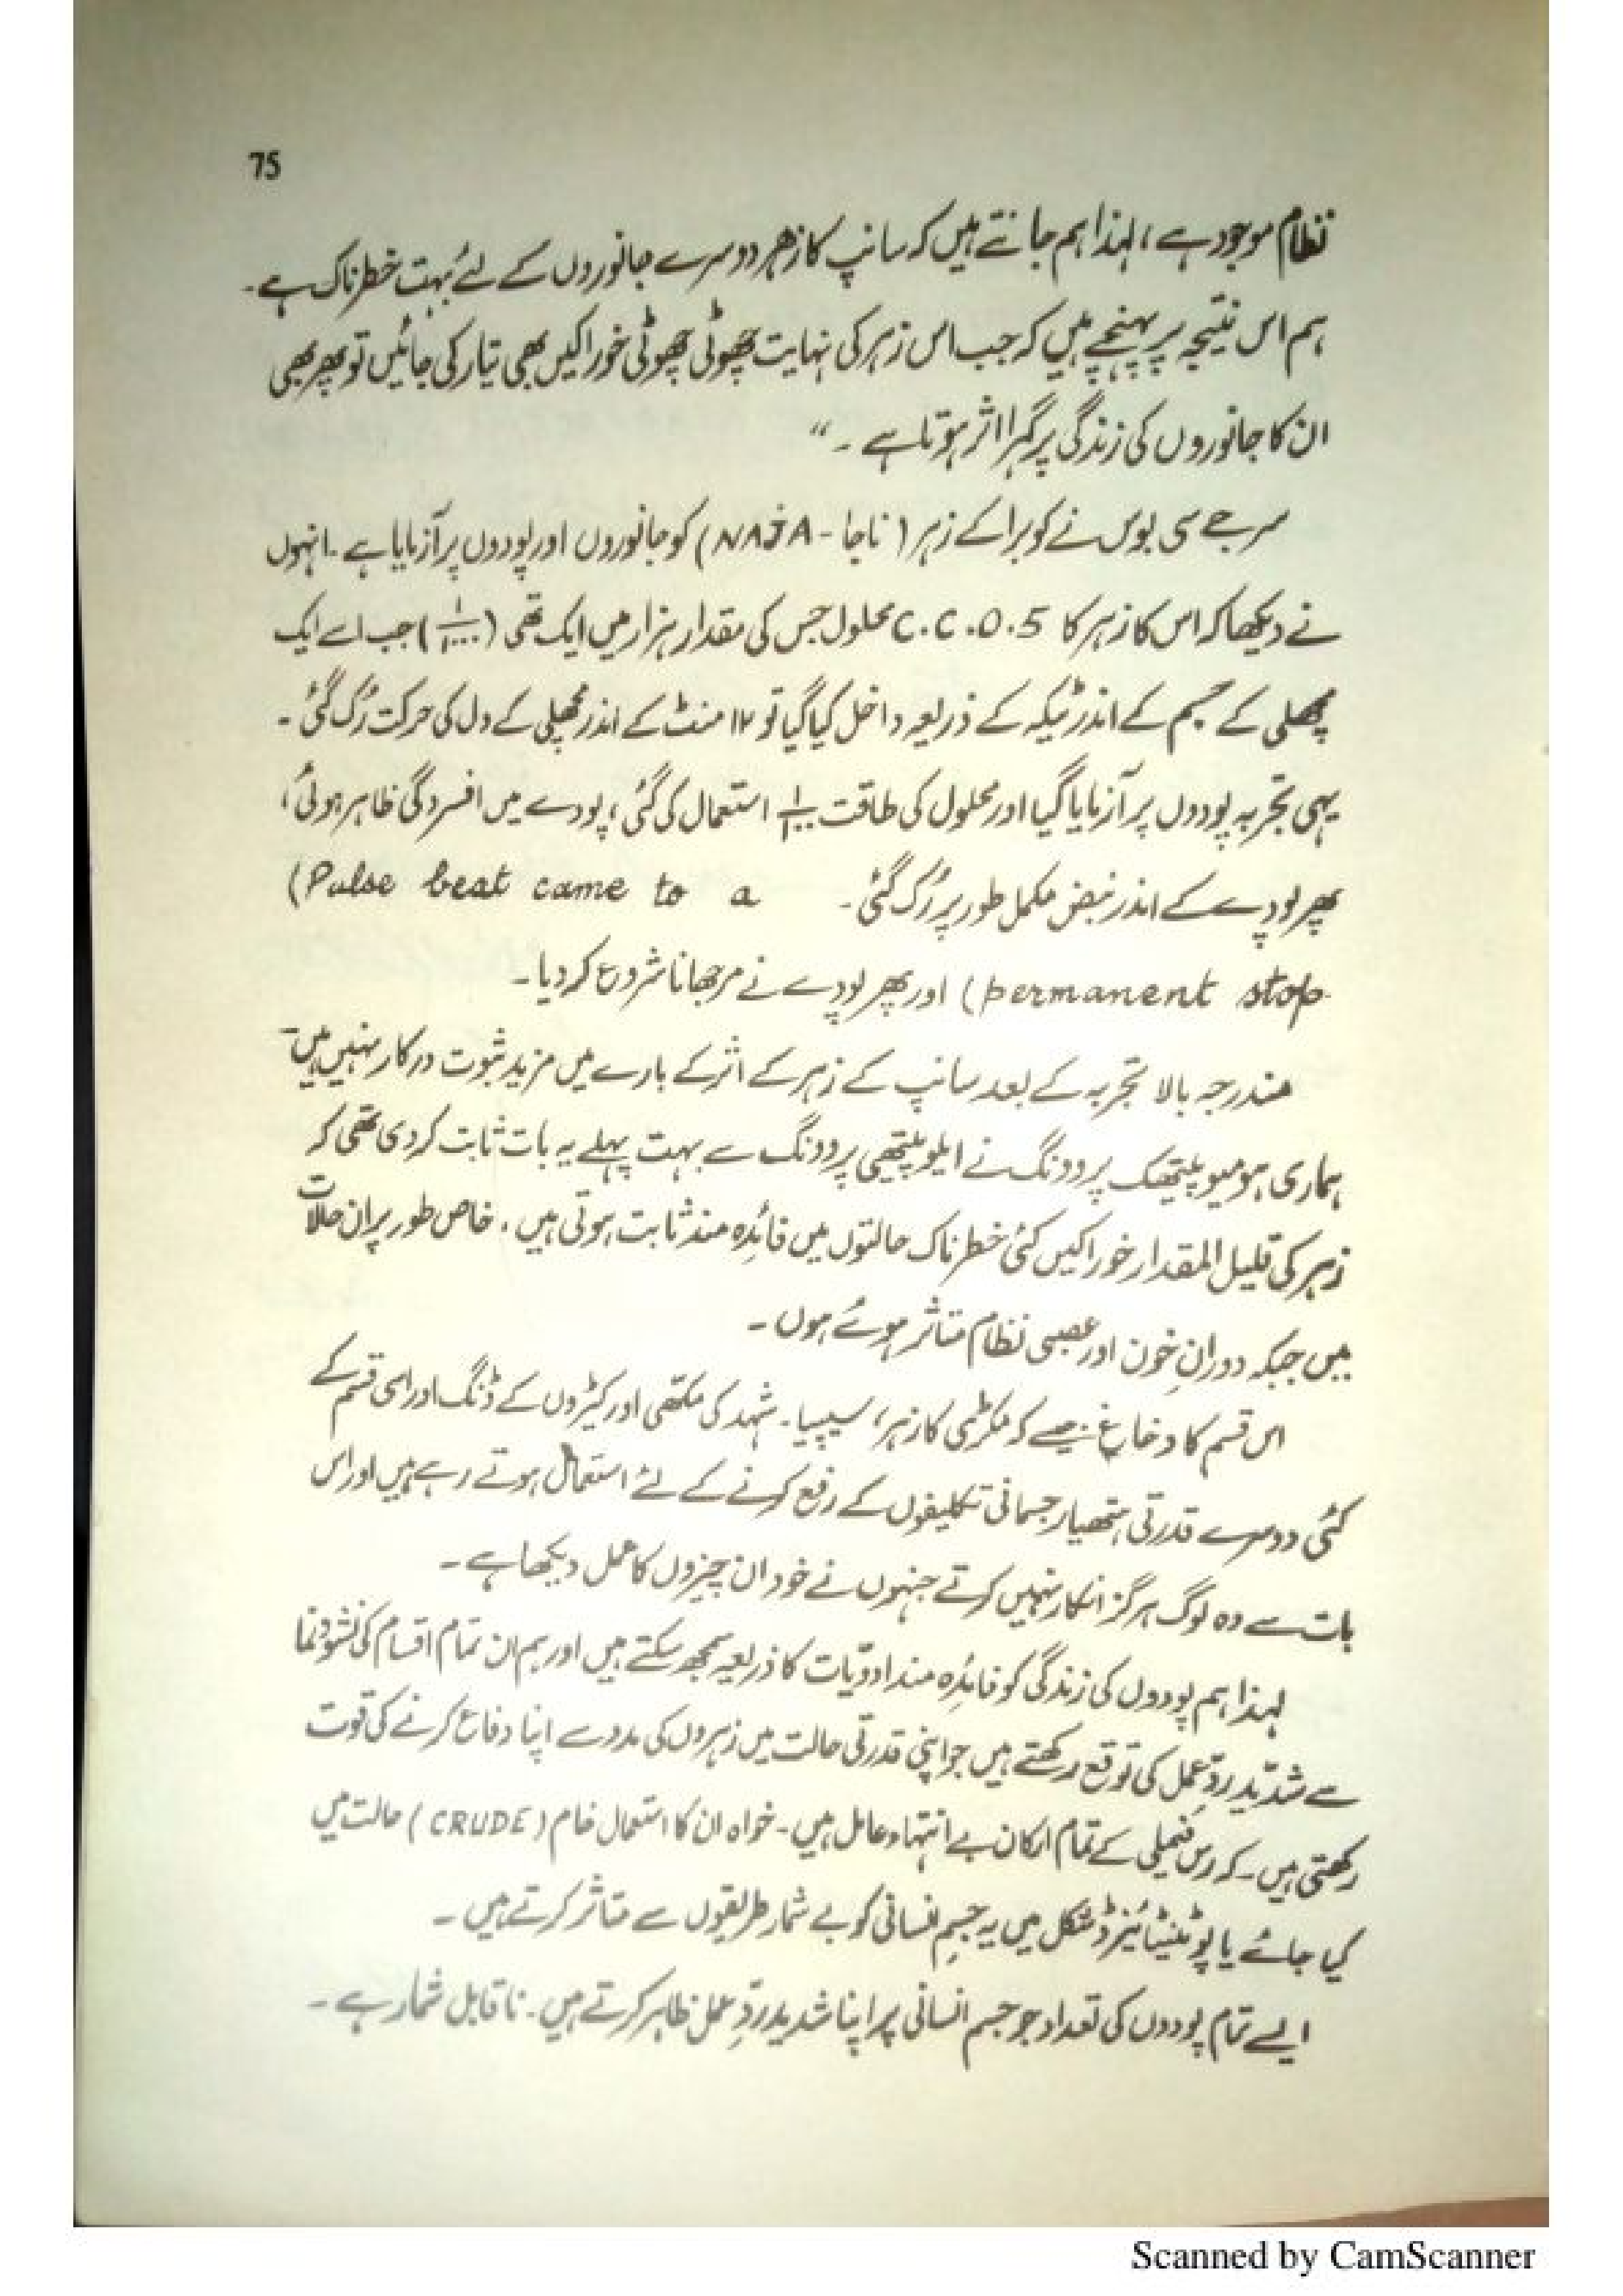 75
نظام موجود ہے، لہذا ہم جانتے ہیں کہ سانپ کا زہر دوسرے جانوروں کے لئے بہت خطرناک ہے۔
ہم اس نتیجہ پر پہنچے ہیں کہ جب اس زہر کی نہایت چھوٹی چھوٹی خوراکیں بھی تیار کی جائیں تو پھر بھی
ان کا جانوروں کی زندگی پر گہرا اثر ہوتا ہے۔“
سر جے سی بوس نے کوبرا کے زہر (ناجا - NAJA) کو جانوروں اور پودوں پر آزمایا ہے۔ انہوں
نے دیکھا کہ اس کا زہر کا C.C.0.5 محلول جس کی مقدار ہزار میں ایک تھی (۱/۱۰۰۰) جب اسے ایک
مچھلی کے جسم کے اندر ٹیکہ کے ذریعہ داخل کیا گیا تو ۱۲ منٹ کے اندر مچھلی کے دل کی حرکت رُک گئی۔
یہی تجربہ پودوں پر آزمایا گیا اور محلول کی طاقت استعمال کی گئی، پودے میں افسردگی ظاہر ہوئی،
پھر پودے کے اندر نبض مکمل طور پر رُک گئی۔ (Pulse beat came to a
permanent stop) اور پھر پودے نے مرجھانا شروع کر دیا۔
مندرجہ بالا تجربہ کے بعد سانپ کے زہر کے اثر کے بارے میں مزید ثبوت درکار نہیں ہیں۔
ہماری ہومیوپیتھک پرووِنگ نے ایلوپیتھی پرووِنگ سے بہت پہلے یہ بات ثابت کر دی تھی کہ
زہر کی قلیل المقدار خوراکیں کئی خطرناک حالتوں میں فائدہ مند ثابت ہوتی ہیں۔ خاص طور پر ان حالات
میں جبکہ دورانِ خون اور عصبی نظام متاثر ہوئے ہوں۔
اس قسم کا دفاع جیسے کہ مکڑی کا زہر، سیپیا۔ شہد کی مکھی اور کیڑوں کے ڈنگ اور اسی قسم کے
کئی دوسرے قدرتی ہتھیار جسمانی تکلیفوں کے رفع کرنے کے لئے استعمال ہوتے رہے ہیں اور اس
بات سے وہ لوگ ہرگز انکار نہیں کرتے جنہوں نے خود ان چیزوں کا عمل دیکھا ہے۔
لہذا ہم پودوں کی زندگی کو فائدہ مند ادویات کا ذریعہ سمجھ سکتے ہیں اور ہم ان تمام اقسام کی نشوونما
سے شدید ردِّ عمل کی توقع رکھتے ہیں جو اپنی قدرتی حالت میں زہروں کی مدد سے اپنا دفاع کرنے کی قوت
رکھتی ہیں۔ کہ رس فیملی کے تمام ارکان بے انتہا عامل ہیں۔ خواہ ان کا استعمال خام (CRUDE) حالت میں
کیا جائے یا پوٹینٹائیزڈ شکل میں یہ جسمِ انسانی کو بے شمار طریقوں سے متاثر کرتے ہیں۔
ایسے تمام پودوں کی تعداد جو جسم انسانی پر اپنا شدید ردِّ عمل ظاہر کرتے ہیں۔ ناقابل شمار ہے۔
Scanned by CamScanner